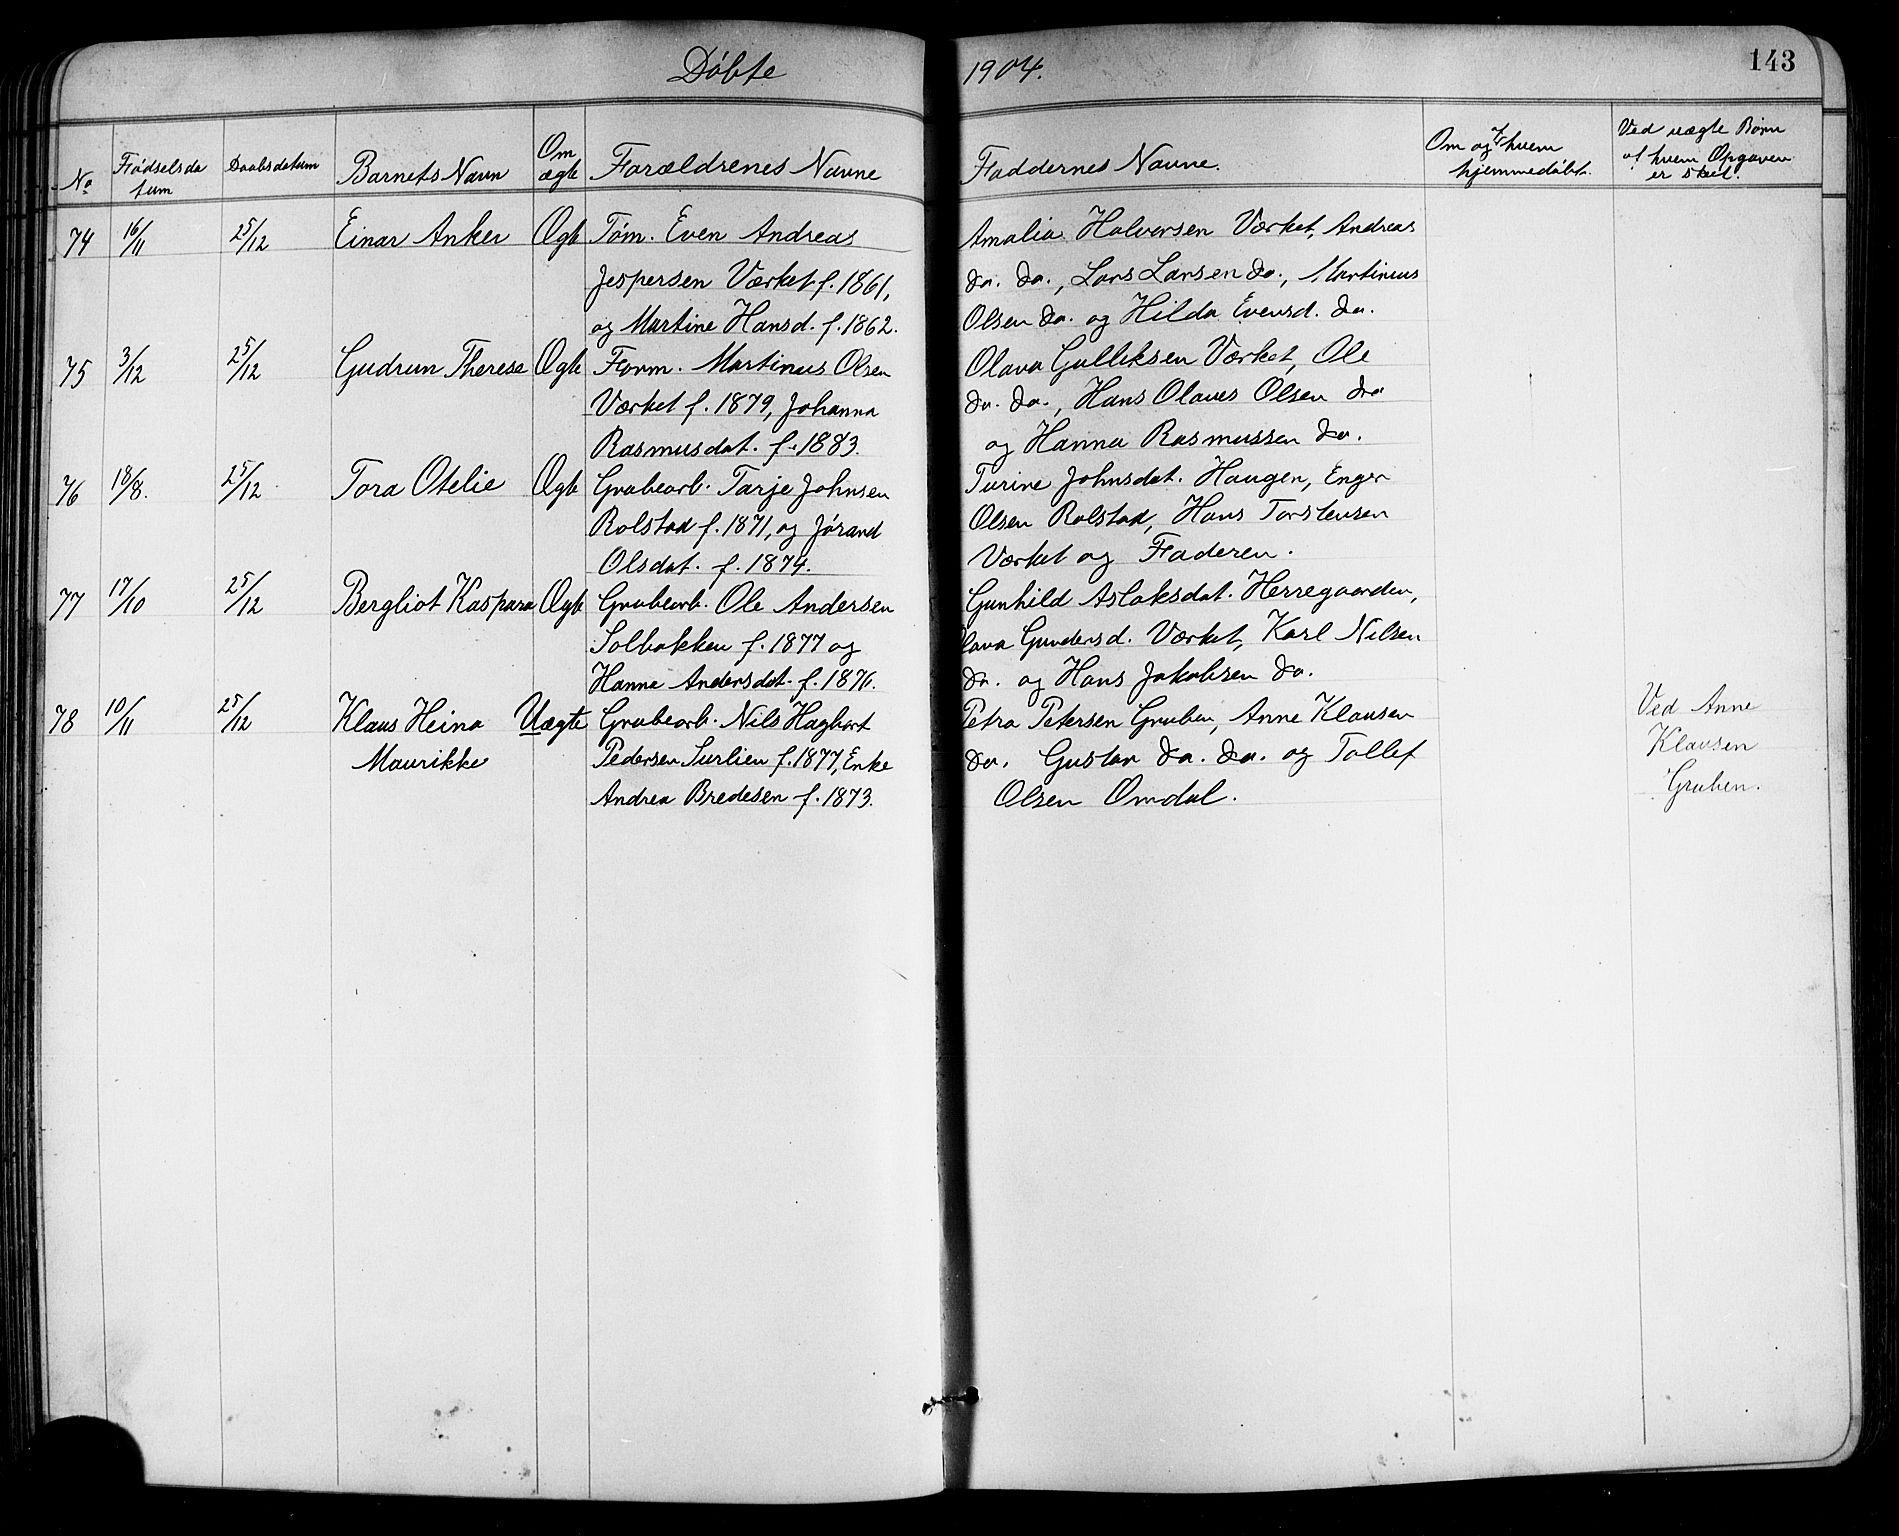 Döbte 1904. 143
No Födselsda Daabsdatum Barnets Navn Om Forældrenes Navne Faddernes Navne. Om og af hvem Ved uægte Børn
tum ægte hjemmedøbt. af hvem Opgaven
er skeet.
74 16/11 25/12 Einar Anker Ægte Tøm. Even Andreas Amalia Halvorsen Værket, Andreas
Jespersen Værket f. 1861, do. do., Lars Larsen do., Martinius
og Martine Hansd. f. 1862. Olsen do. og Hilda Evensd. do.
75 3/12 25/12 Gudrun Therese Ægte Form. Martinus Olsen Olava Gulliksen Værket, Ole
Værket f. 1879, Johanna do. do., Hans Olaves Olsen do
Rasmusdat. f. 1883. og Hanna Rasmussen do.
76 18/8. 25/12 Tora Otelie Ægte Grubearb. Tarje Johnsen Turine Johnsdat. Haugen, Enger
Rolstad f. 1871, og Jørand Olsen Rolstad, Hans Torstensen
Olsdat. f. 1874. Værket og Faderen.
77 17/10 25/12 Bergliot Kaspara Ægte Grubearb. Ole Andersen Gunhild Aslaksdat. Herregaarden,
Solbakken f. 1877 og lava Gundersd. Værket, Karl Nilsen
Hanna Andersdat. f. 1876. do. og Hans Jakobsen do.
78 10/11 25/12 Klaus Heina Uægte Grubearb. Nils Hagbart Petra Petersen Gruben, Anne Klausen Ved Anne
Maurikke Pedersen Surlien f. 1877, Enke do. Gustav do. do. og Tollef Klausen
Andrea Bredesen f. 1873. Olsen Omdal. Gruben.